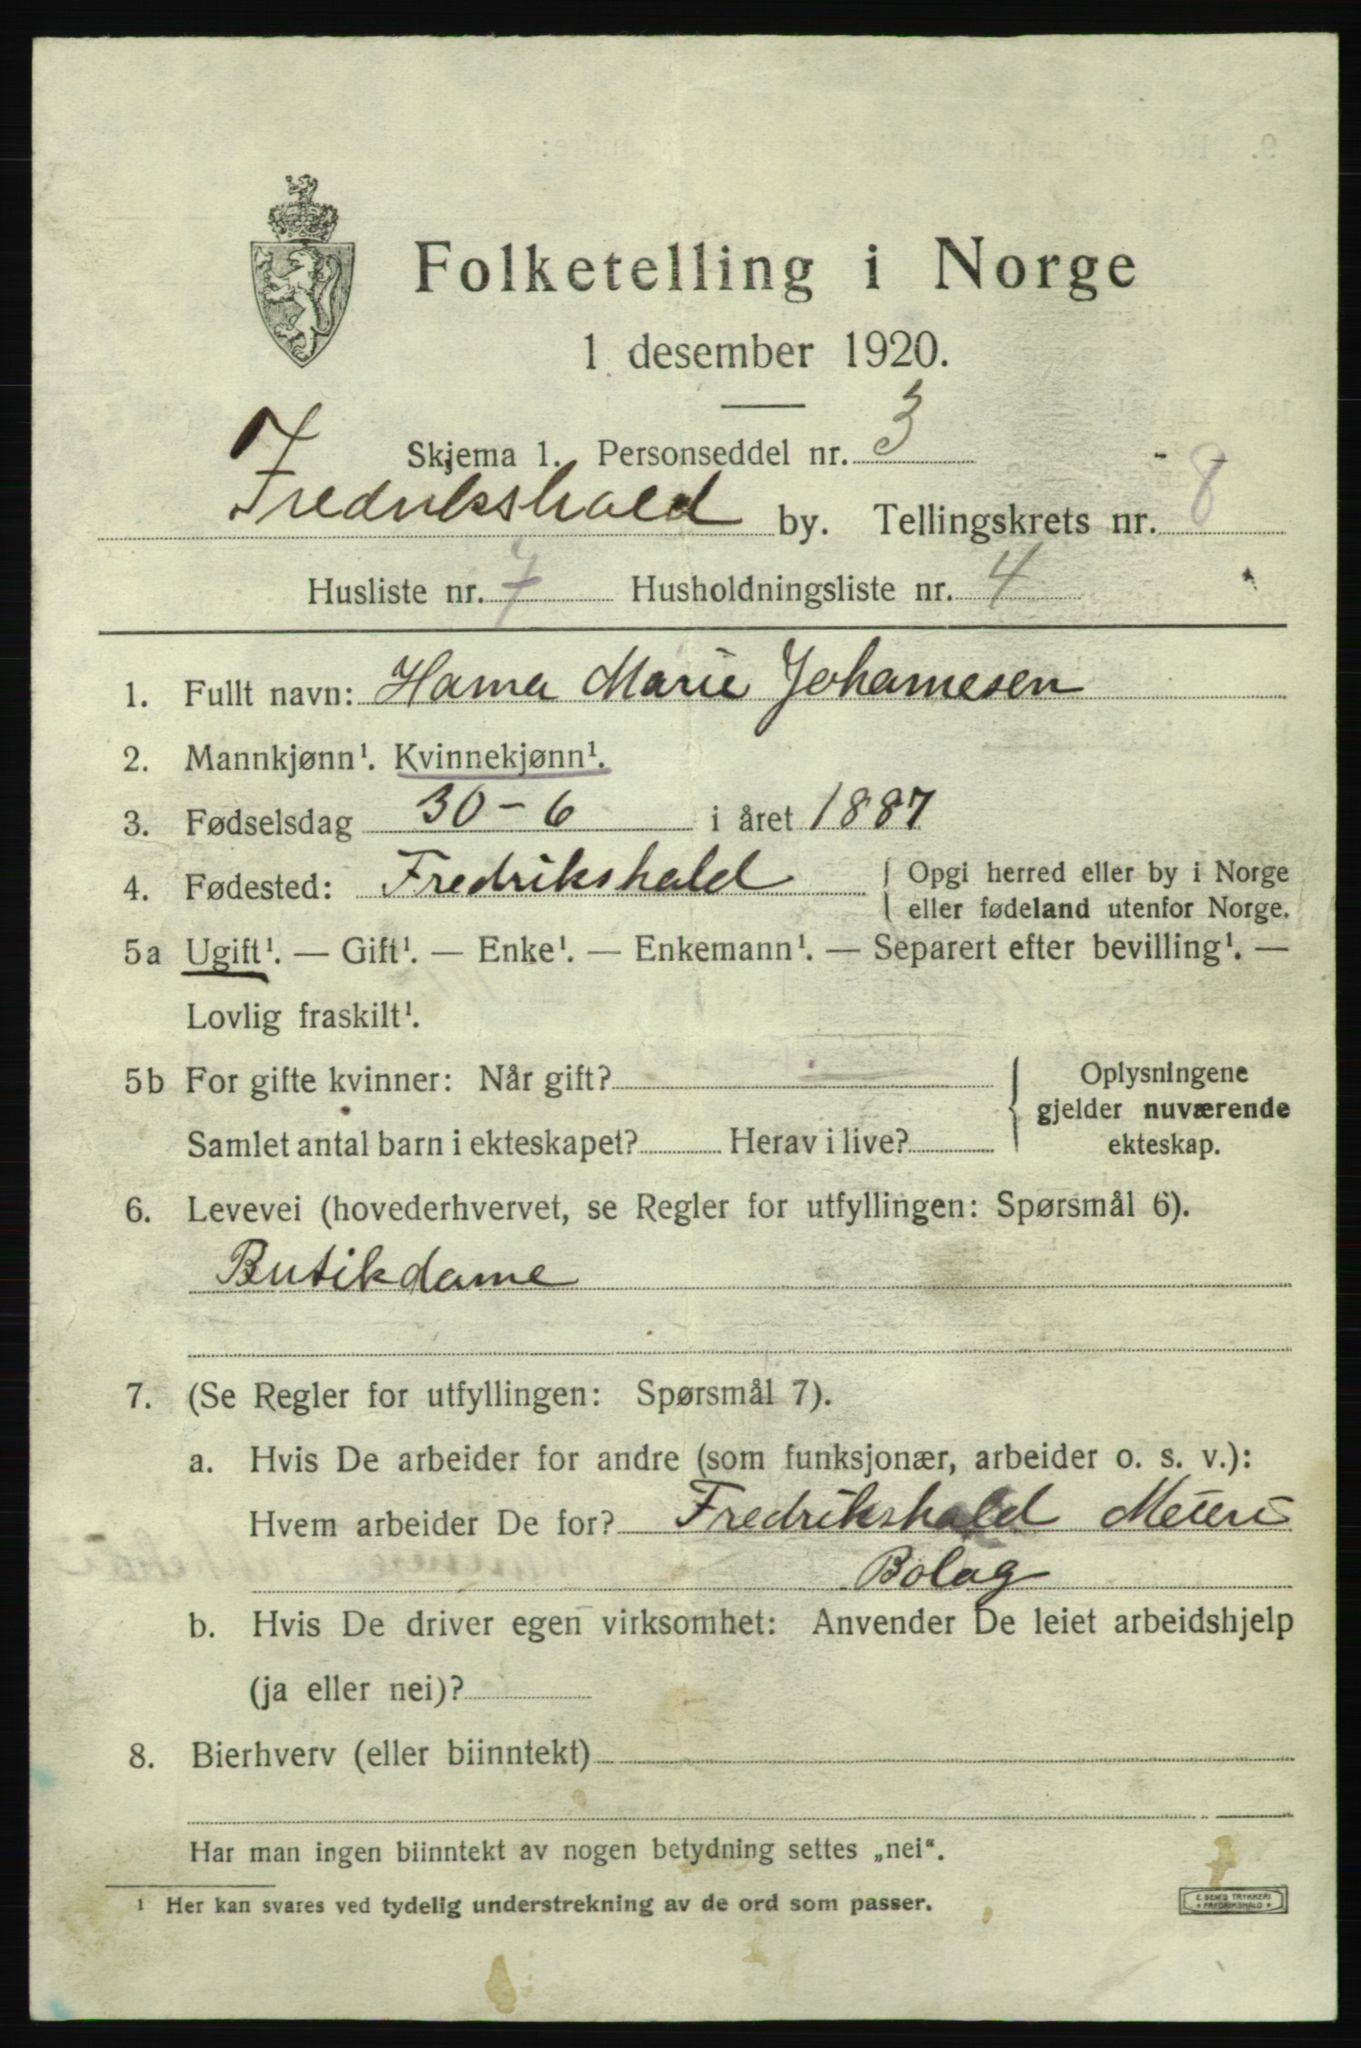 Folketelling i Norge
1 desember 1920.
Skjema 1. Personseddel nr. 3
Fredrikshald by. Tellingskrets nr. 8
Husliste nr. 7 Husholdningsliste nr. 4
1. Fullt navn: Hanna Marie Johannesen
2. Mannkjønn¹. Kvinnekjønn¹.
3. Fødselsdag 30-6 i året 1887
4. Fødested: Fredrikshald { Opgi herred eller by i Norge
eller fødeland utenfor Norge.
5a Ugift¹. — Gift¹. — Enke¹. — Enkemann¹. — Separert efter bevilling¹. —
Lovlig fraskilt¹.
5b For gifte kvinner: Når gift? { Oplysningene
gjelder nuværende
Samlet antal barn i ekteskapet? Herav i live? ekteskap.
6. Levevei (hovederhvervet, se Regler for utfyllingen: Spørsmål 6).
Butikdame
7. (Se Regler for utfyllingen: Spørsmål 7).
a. Hvis De arbeider for andre (som funksjonær, arbeider o. s. v.):
Hvem arbeider De for? Fredrikshald Meieri
Bolag
b. Hvis De driver egen virksomhet: Anvender De leiet arbeidshjelp
(ja eller nei)?
8. Bierhverv (eller biinntekt)
Har man ingen biinntekt av nogen betydning settes „nei“.
¹ Her kan svares ved tydelig understrekning av de ord som passer.
E. SEMS TRYKKERI
* FREDRIKSHALD *